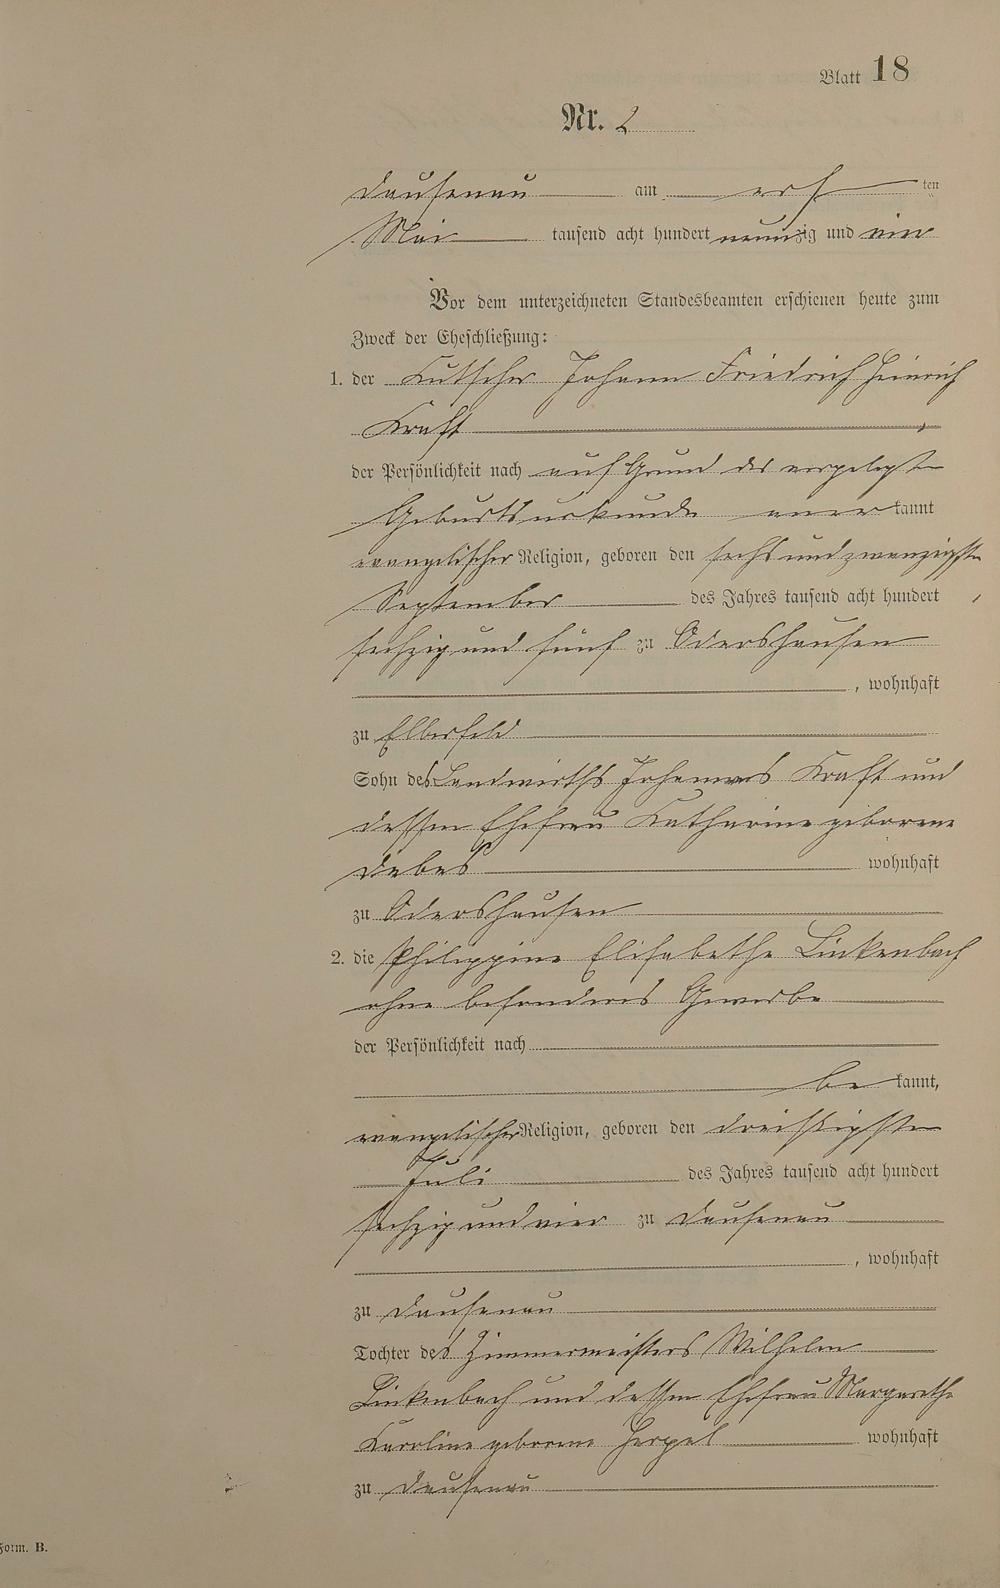 Blatt 18
Nr. 2
Dausenau am ersten
Mai tausend acht hundert neunzig und ein
Vor dem unterzeichneten Standesbeamten erschienen heute zum
Zweck der Eheschließung:
1. der Kutscher Johann Friedrich Heinrich
Kraft,
der Persönlichkeit nach auf Grund der vorgelegten
Geburtsurkunde anerkannt
evangelischer Religion, geboren den sechs und zwanzigsten
September des Jahres tausend acht hundert
sechzig und fünf zu Odershausen
, wohnhaft
zu Elberfeld
Sohn des Landwirths Johannes Kraft und
dessen Ehefrau Katharine geborene
Debes wohnhaft
zu Odershausen
2. die Philippine Elisabethe Linkenbach
ohne besonderes Gewerbe
der Persönlichkeit nach
bekannt,
evangelischer Religion, geboren den dreißigsten
Juli des Jahres tausend acht hundert
sechzig und vier zu Dausenau
, wohnhaft
zu Dausenau
Tochter des Zimmermeisters Wilhelm
Linkenbach und dessen Ehefrau Margarethe
Karoline geborene Herpel wohnhaft
zu Dausenau
Form. B.